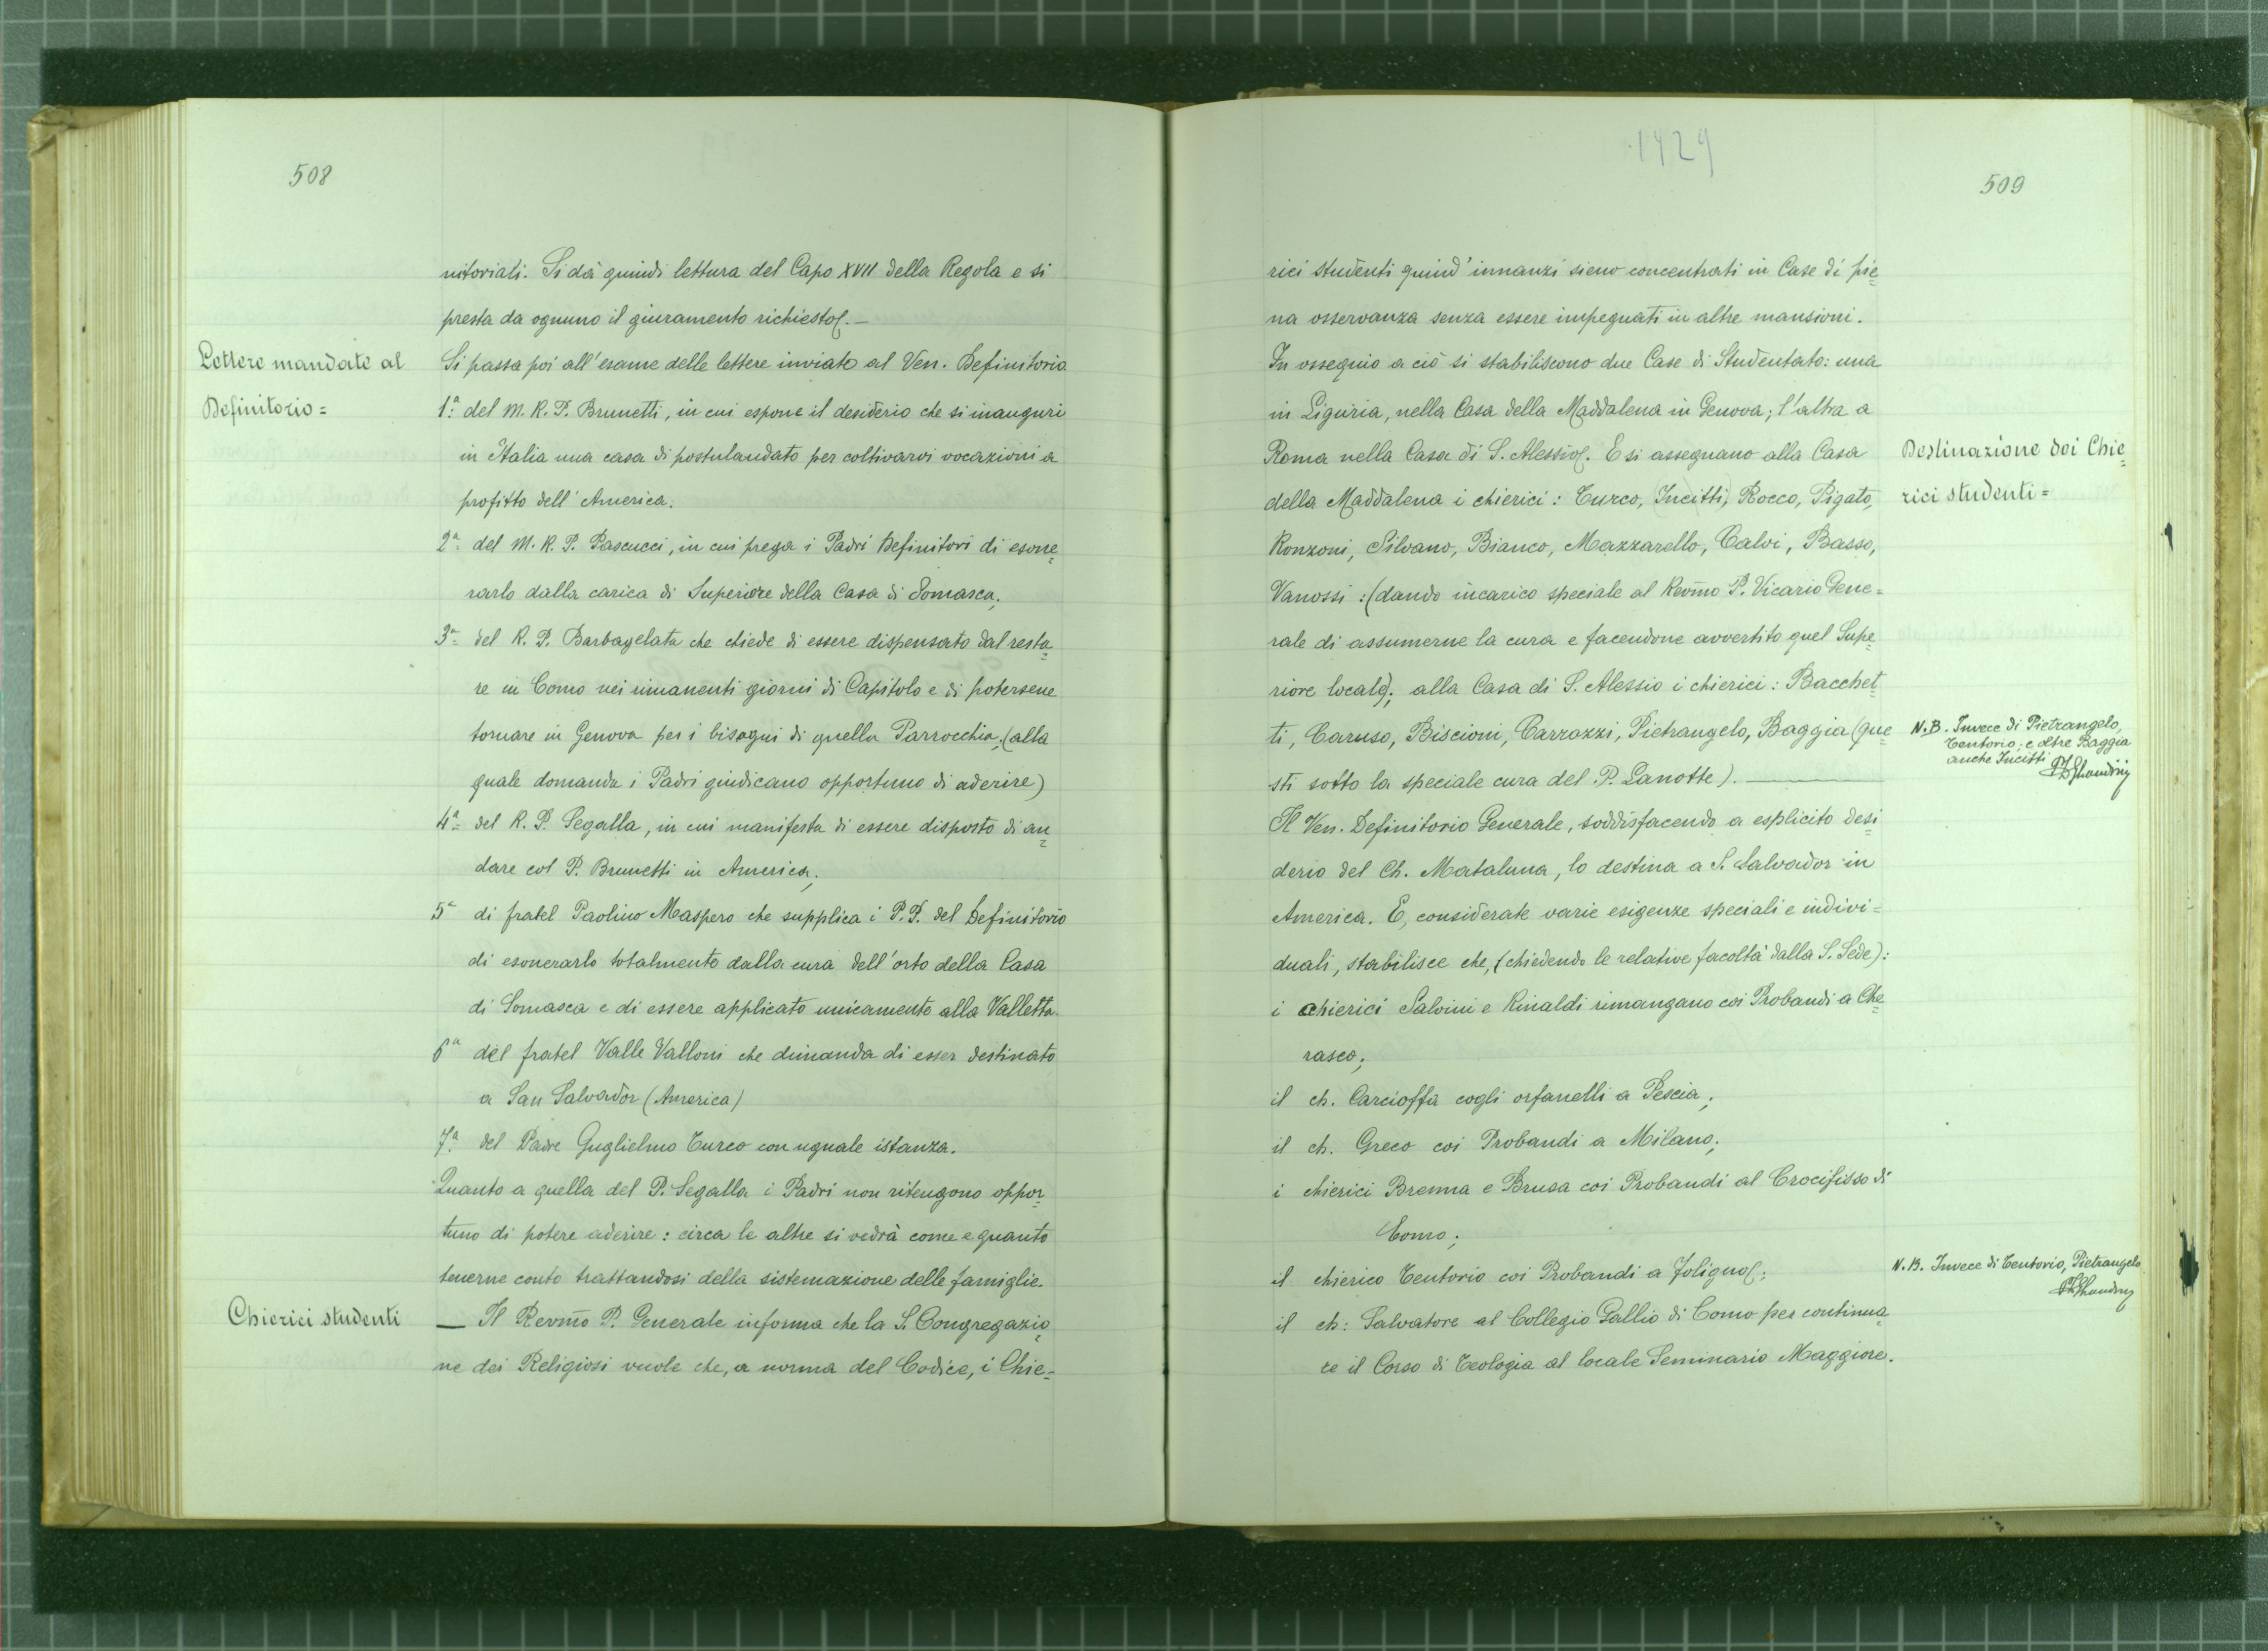 508
nitoriali. Si dà quindi lettura del Capo XVII della Regola e si
presta da ognuno il giuramento richiesto.—
Lettere mandate al
Definitorio=
Si passa poi all'esame delle lettere inviate al Ven. Definitorio
1.ª del M. R. P. Brunetti, in cui espone il desiderio che si inauguri
in Italia una casa di postulandato per coltivarvi vocazioni a
profitto dell'America.
2ª= del M. R. P. Pascucci, in cui prega i Padri Definitori di esone=
rarlo dalla carica di Superiore della Casa di Somasca;
3ª= del R. P. Barbagelata che chiede di essere dispensato dal resta=
re in Como nei rimanenti giorni di Capitolo e di potersene
tornare in Genova per i bisogni di quella Parrocchia; (alla
quale domanda i Padri giudicano opportuno di aderire)
4ª= del R. P. Segalla, in cui manifesta di essere disposto di an=
dare col P. Brunetti in America;
5ª di fratel Paolino Maspero che supplica i P.P. del Definitorio
di esonerarlo totalmente dalla cura dell'orto della Casa
di Somasca e di essere applicato unicamente alla Valletta.
6ª del fratel Valle Valloni che dimanda di esser destinato
a San Salvador (America)
7.ª del Padre Guglielmo Turco con uguale istanza.
Quanto a quella del P. Segalla i Padri non ritengono oppor=
tuno di potere aderire: circa le altre si vedrà come e quanto
tenerne conto trattandosi della sistemazione delle famiglie.
Chierici studenti
— Il Revmo P. Generale informa che la S. Congregazio=
ne dei Religiosi vuole che, a norma del Codice, i Chie=
1429
509
rici studenti quind'innanzi sieno concentrati in Case di pie=
na osservanza senza essere impegnati in altre mansioni.
In ossequio a ciò si stabiliscono due Case di Studentato: una
in Liguria, nella Casa della Maddalena in Genova; l'altra a
Roma nella Casa di S. Alessio. E si assegnano alla Casa
Destinazione dei Chie=
rici studenti=
della Maddalena i chierici: Turco, (Incitti), Rocco, Pigato,
Ronzoni, Silvano, Bianco, Mazzarello, Calvi, Basso,
Vanossi: (dando incarico speciale al Revmo P. Vicario Gene=
rale di assumerne la cura e facendone avvertito quel Supe=
riore locale); alla Casa di S. Alessio i chierici: Bacchet=
ti, Caruso, Biscioni, Carrozzi, Pietrangelo, Baggia (que=
N.B. Invece di Pietrangelo,
Tentorio; e oltre Baggia
anche Incitti
sti sotto la speciale cura del P. Lanotte). —
Il Ven. Definitorio Generale, soddisfacendo a esplicito desi=
derio del Ch. Mataluna, lo destina a S. Salvador in
America. E, considerate varie esigenze speciali e indivi=
duali, stabilisce che, (chiedendo le relative facoltà dalla S. Sede):
i chierici Salvini e Rinaldi rimangano coi Probandi a Che=
rasco;
il ch. Carcioffa cogli orfanelli a Pescia;
il ch. Greco coi Probandi a Milano;
i chierici Brenna e Brusa coi Probandi al Crocifisso di
Como;
il chierico Tentorio coi Probandi a Foligno;
N.B. Invece di Tentorio, Pietrangelo
il ch: Salvatore al Collegio Gallio di Como per continua=
re il Corso di Teologia al locale Seminario Maggiore.